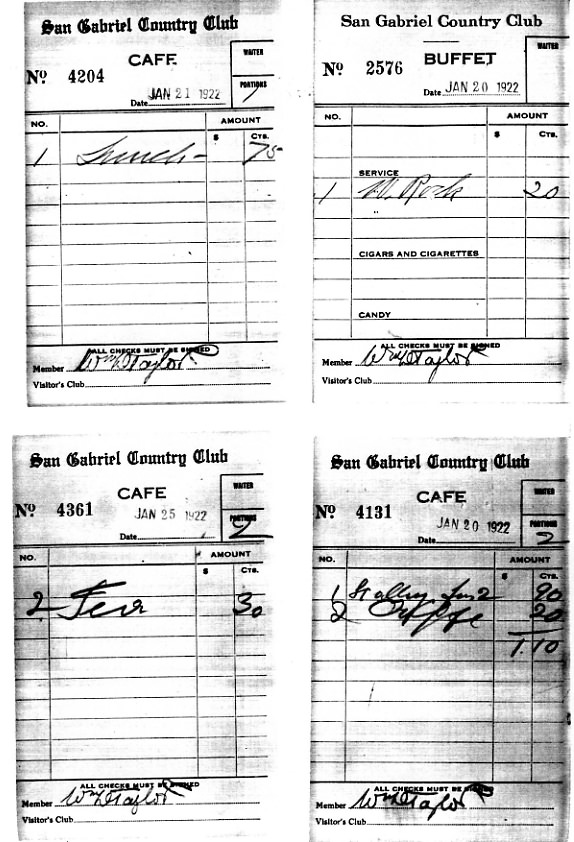 San Gabriel Country Club
WAITER
CAFE
Nº 4204
PORTIONS
1
Date JAN 21 1922
NO. AMOUNT
$ CTS.
1 Lunch - 75
ALL CHECKS MUST BE SIGNED
Member Wm D Taylor
Visitor's Club
San Gabriel Country Club
WAITER
BUFFET
Nº 2576
Date JAN 20 1922
NO. AMOUNT
$ CTS.
SERVICE
1 W. Rock 20
CIGARS AND CIGARETTES
CANDY
ALL CHECKS MUST BE SIGNED
Member Wm D Taylor
Visitor's Club
San Gabriel Country Club
WAITER
CAFE
Nº 4361
PORTIONS
2
JAN 25 1922
Date
NO. AMOUNT
$ CTS.
2 Tea 30
ALL CHECKS MUST BE SIGNED
Member Wm D Taylor
Visitor's Club
San Gabriel Country Club
WAITER
CAFE
Nº 4131
PORTIONS
2
JAN 20 1922
Date
NO. AMOUNT
$ CTS.
1 90
2 20
1.10
ALL CHECKS MUST BE SIGNED
Member Wm D Taylor
Visitor's Club